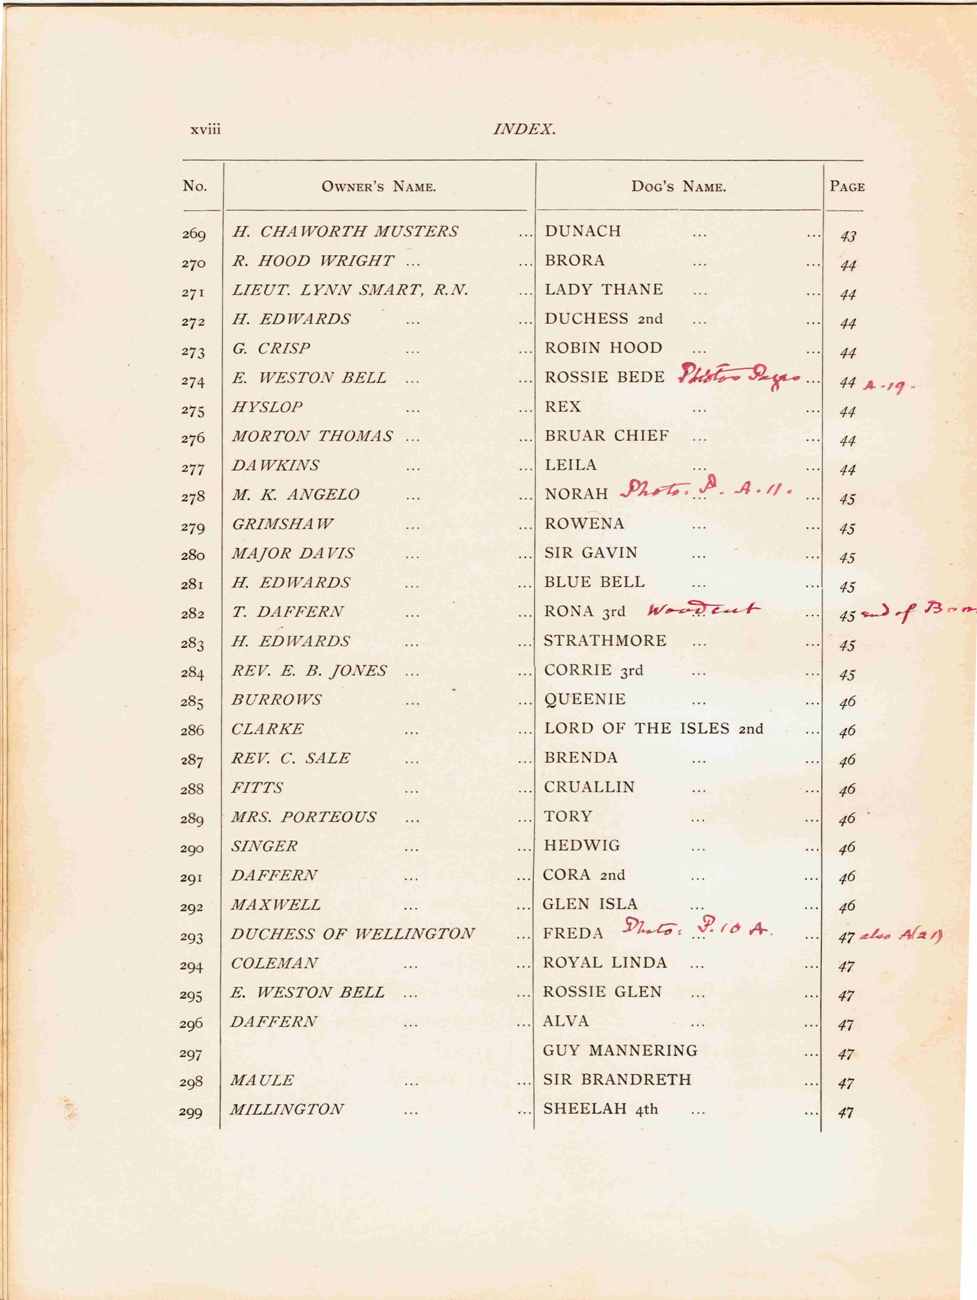 xviii INDEX.
No. OWNER'S NAME. DOG'S NAME. PAGE
269 H. CHAWORTH MUSTERS ... DUNACH ... ... 43
270 R. HOOD WRIGHT ... ... BRORA ... ... 44
271 LIEUT. LYNN SMART, R.N. ... LADY THANE ... ... 44
272 H. EDWARDS ... ... DUCHESS 2nd ... ... 44
273 G. CRISP ... ... ROBIN HOOD ... ... 44
274 E. WESTON BELL ... ... ROSSIE BEDE Photos Pages ... 44 A.19.
275 HYSLOP ... ... REX ... ... 44
276 MORTON THOMAS ... ... BRUAR CHIEF ... ... 44
277 DAWKINS ... ... LEILA ... ... 44
278 M. K. ANGELO ... ... NORAH Photo. P. A.11. ... ... 45
279 GRIMSHAW ... ... ROWENA ... ... 45
280 MAJOR DAVIS ... ... SIR GAVIN ... ... 45
281 H. EDWARDS ... ... BLUE BELL ... ... 45
282 T. DAFFERN ... ... RONA 3rd Woodcut ... ... 45 end of Book
283 H. EDWARDS ... ... STRATHMORE ... ... 45
284 REV. E. B. JONES ... ... CORRIE 3rd ... ... 45
285 BURROWS ... ... QUEENIE ... ... 46
286 CLARKE ... ... LORD OF THE ISLES 2nd ... 46
287 REV. C. SALE ... ... BRENDA ... ... 46
288 FITTS ... ... CRUALLIN ... ... 46
289 MRS. PORTEOUS ... ... TORY ... ... 46
290 SINGER ... ... HEDWIG ... ... 46
291 DAFFERN ... ... CORA 2nd ... ... 46
292 MAXWELL ... ... GLEN ISLA ... ... 46
293 DUCHESS OF WELLINGTON ... FREDA Photo: P. 10 A. ... ... 47 also A(21)
294 COLEMAN ... ... ROYAL LINDA ... ... 47
295 E. WESTON BELL ... ... ROSSIE GLEN ... ... 47
296 DAFFERN ... ... ALVA ... ... 47
297 GUY MANNERING ... 47
298 MAULE ... ... SIR BRANDRETH ... 47
299 MILLINGTON ... ... SHEELAH 4th ... ... 47